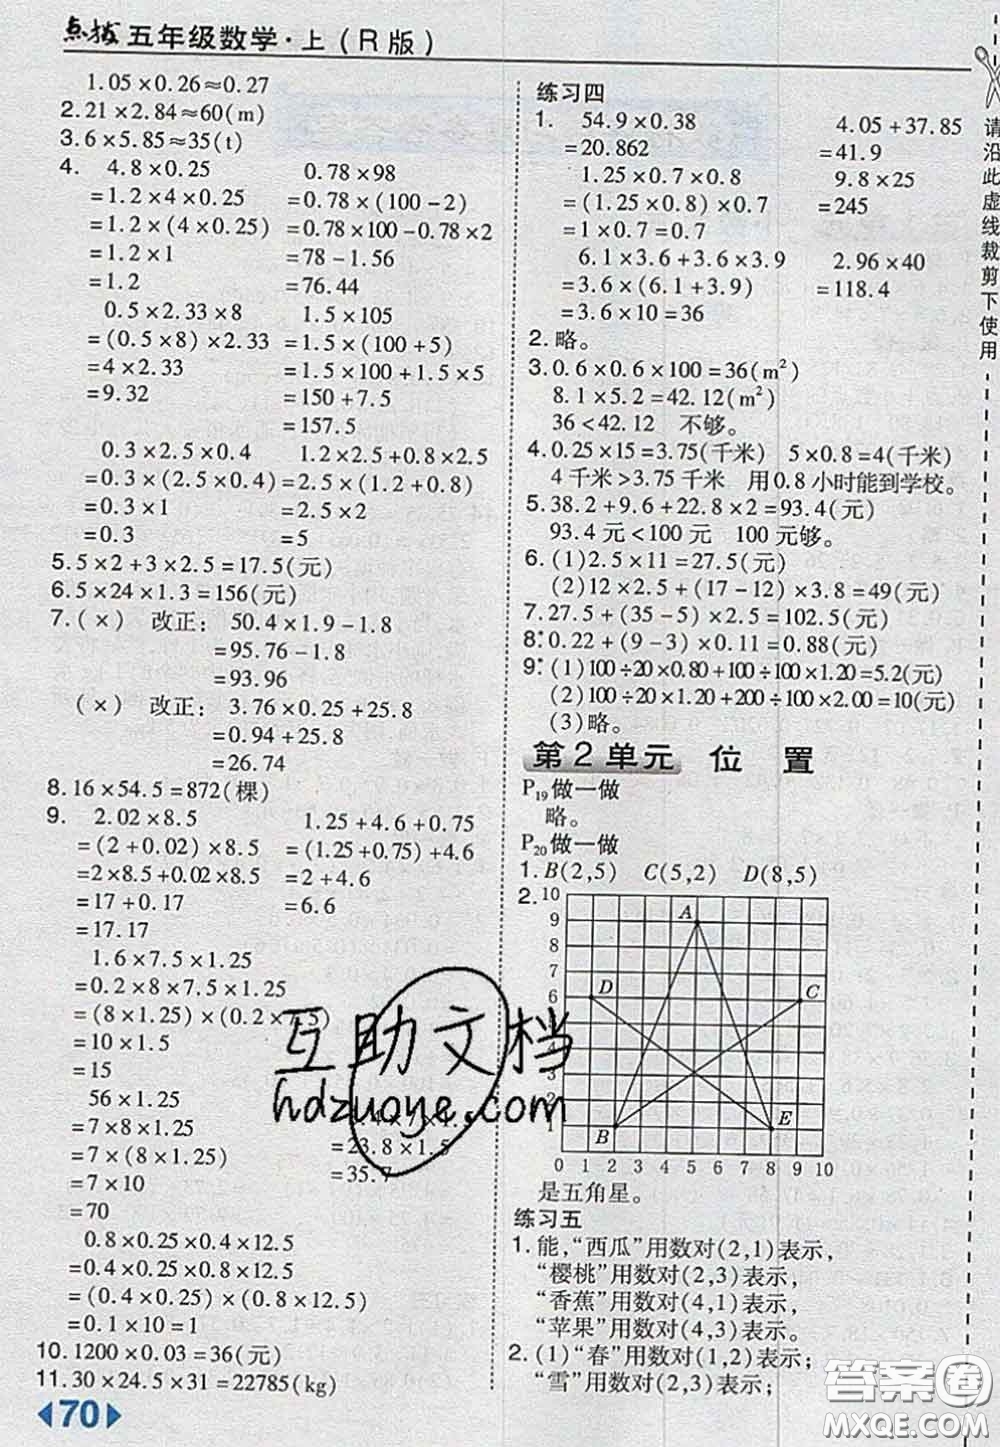 点拨 五年级数学·上(R版)
1.05×0.26≈0.27
2.21×2.84≈60(m)
3.6×5.85≈35(t)
4. 4.8×0.25
=1.2×4×0.25
=1.2×(4×0.25)
=1.2×1
=1.2
0.78×98
=0.78×(100-2)
=0.78×100-0.78×2
=78-1.56
=76.44
0.5×2.33×8
=(0.5×8)×2.33
=4×2.33
=9.32
1.5×105
=1.5×(100+5)
=1.5×100+1.5×5
=150+7.5
=157.5
0.3×2.5×0.4
=0.3×(2.5×0.4)
=0.3×1
=0.3
1.2×2.5+0.8×2.5
=2.5×(1.2+0.8)
=2.5×2
=5
5.5×2+3×2.5=17.5(元)
6.5×24×1.3=156(元)
7.(×) 改正: 50.4×1.9-1.8
=95.76-1.8
=93.96
(×) 改正: 3.76×0.25+25.8
=0.94+25.8
=26.74
8.16×54.5=872(棵)
9. 2.02×8.5
=(2+0.02)×8.5
=2×8.5+0.02×8.5
=17+0.17
=17.17
1.25+4.6+0.75
=(1.25+0.75)+4.6
=2+4.6
=6.6
1.6×7.5×1.25
=0.2×8×7.5×1.25
=(8×1.25)×(0.2×7.5)
=10×1.5
=15
56×1.25
=7×8×1.25
=7×(8×1.25)
=7×10
=70
=23.8×1.5
=35.7
0.8×0.25×0.4×12.5
=(0.4×0.25)×(0.8×12.5)
=0.1×10=1
10.1200×0.03=36(元)
11.30×24.5×31=22785(kg)
70
练习四
1. 54.9×0.38
=20.862
4.05+37.85
=41.9
1.25×0.7×0.8
=(1.25×0.8)×0.7
=1×0.7=0.7
9.8×25
=245
6.1×3.6+3.6×3.9
=3.6×(6.1+3.9)
=3.6×10=36
2.96×40
=118.4
2.略。
3.0.6×0.6×100=36(m²)
8.1×5.2=42.12(m²)
36<42.12 不够。
4.0.25×15=3.75(千米) 5×0.8=4(千米)
4千米>3.75千米 用0.8小时能到学校。
5.38.2+9.6+22.8×2=93.4(元)
93.4元<100元 100元够。
6.(1)2.5×11=27.5(元)
(2)12×2.5+(17-12)×3.8=49(元)
7.27.5+(35-5)×2.5=102.5(元)
8*.0.22+(9-3)×0.11=0.88(元)
9*.(1)100÷20×0.80+100÷100×1.20=5.2(元)
(2)100÷20×1.20+200÷100×2.00=10(元)
(3)略。
第2单元 位置
P19做一做
略。
P20做一做
1.B(2,5) C(5,2) D(8,5)
2.
10
9
8
7
6
5
4
3
2
1
A
D
C
B
E
0 1 2 3 4 5 6 7 8 9 10
是五角星。
练习五
1.能,“西瓜”用数对(2,1)表示,
“樱桃”用数对(2,3)表示,
“香蕉”用数对(4,1)表示,
“苹果”用数对(4,3)表示。
2.(1)“春”用数对(1,2)表示;
“雪”用数对(2,3)表示;
请沿此虚线裁剪下使用
互助文档
hdzuoye.com
答案圈
MXQE.COM